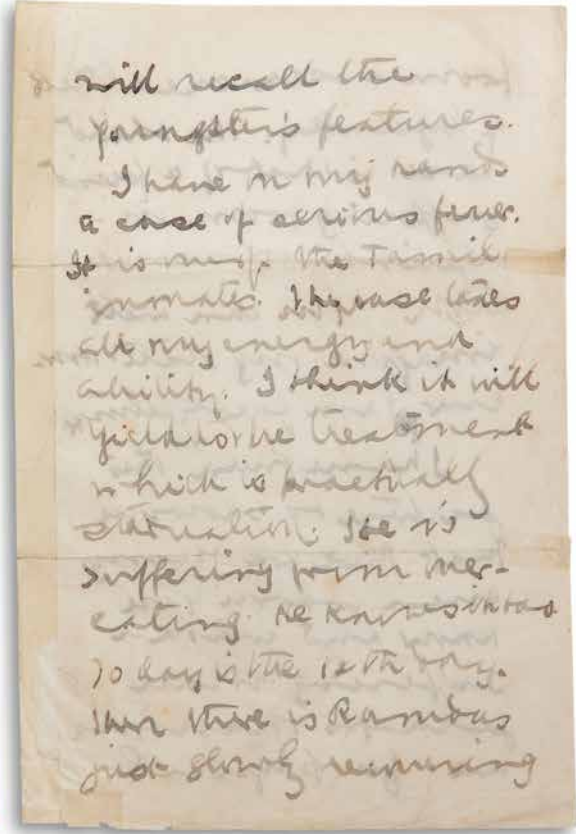 will recall the
youngster's features.
I have on my hands
a case of serious fever.
It is one of the Tamil
inmates. The case takes
all my energy and
ability. I think it will
yield to the treatment
which is practically
starvation. He is
suffering from over-
eating. He knows it too
To day is the 12th day.
then there is Ramdas
just slowly recovering